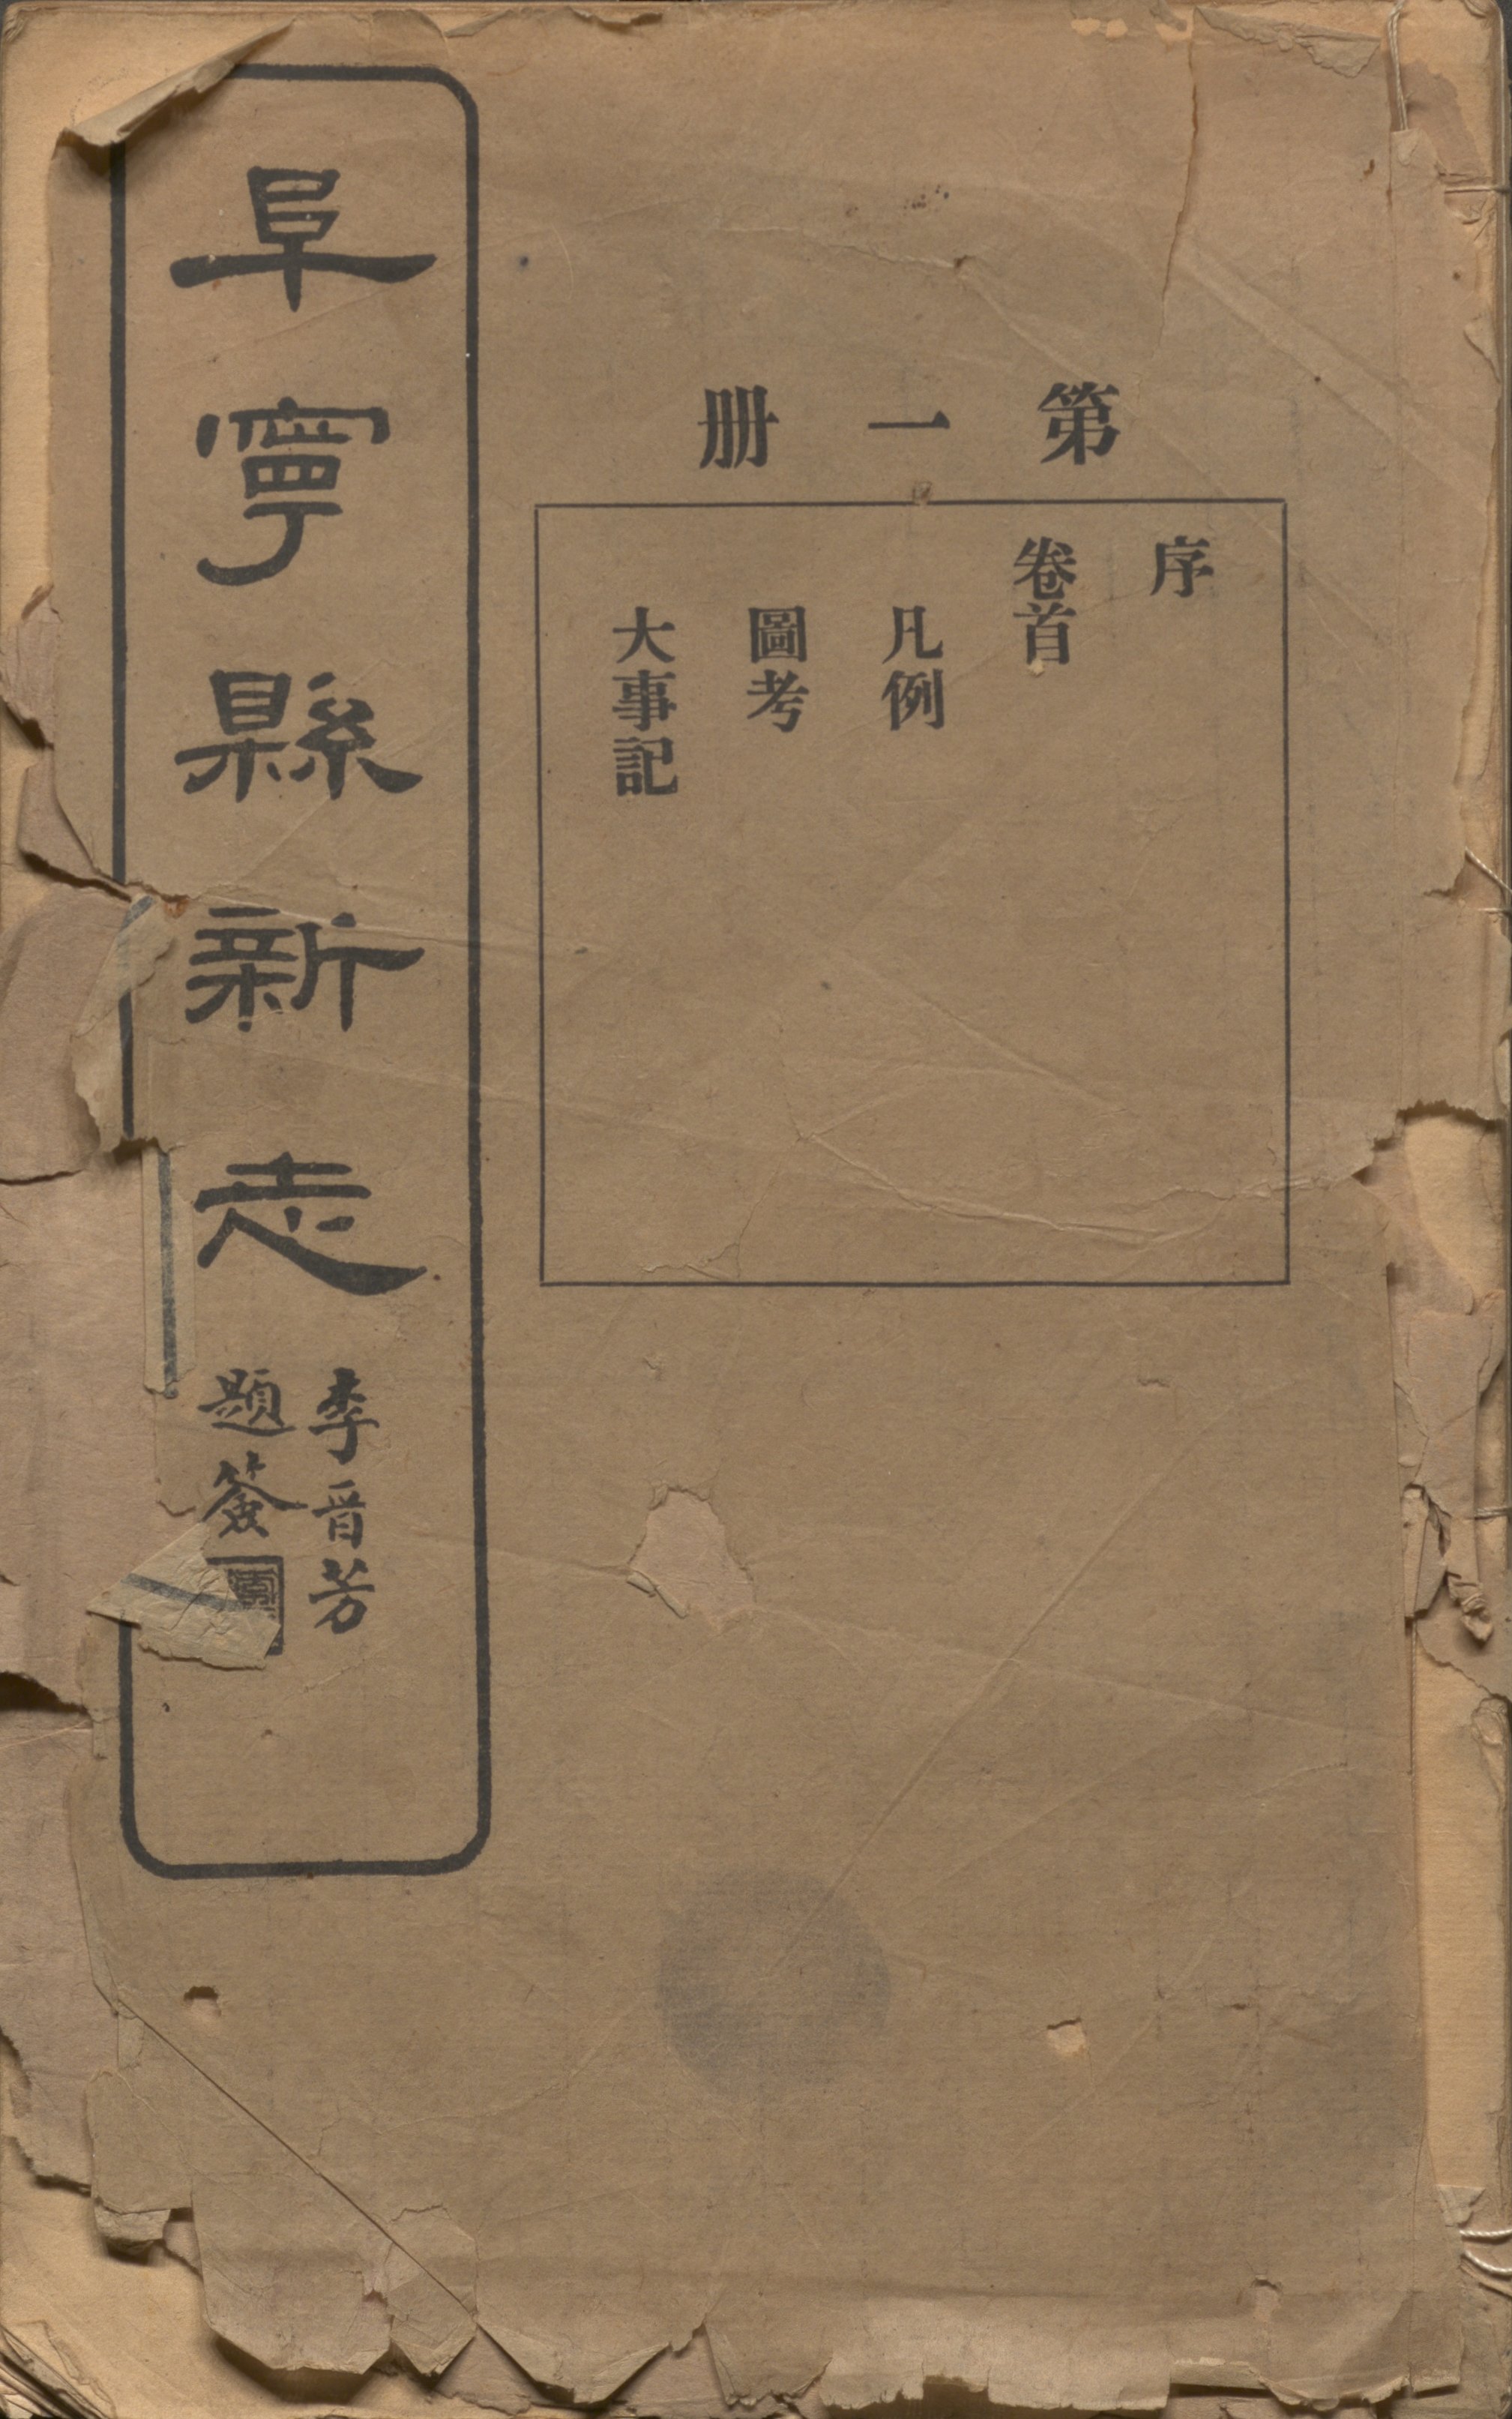 第一册
序
卷首
凡例
圖考
大事記
阜寧縣新志
李晋芳
題簽